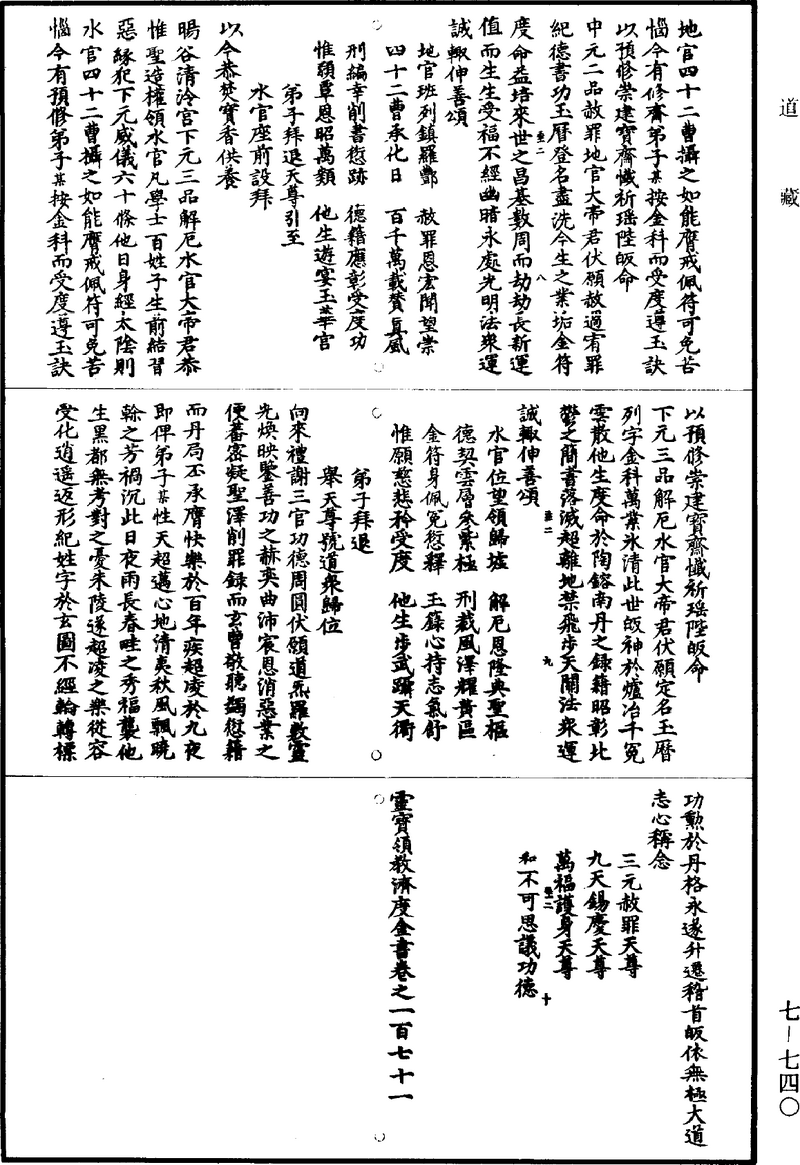 道藏
地官四十二曹攝之如能膺戒佩符可免苦
惱今有修齋弟子某按金科而受度遵玉訣
以預修崇建寶齋懺祈瑶陛皈命
中元二品赦罪地官大帝君伏願赦過宥罪
紀德書功玉曆登名盡洗今生之業垢金符
度命益培來世之昌基數周而劫劫長新運
值而生生受福不經幽暗永處光明法衆運
誠輙伸善頌
地官班列鎮羅酆　赦罪恩宏聞望崇
四十二曹承化日　百千萬載賛真風
刑編幸削書愆跡　德籍應彰受度功
惟願覃恩昭萬類　他生遊宴玉華宫
弟子拜退天尊引至
水官座前設拜
以今恭焚寶香供養
暘谷清泠宫下元三品解厄水官大帝君恭
惟聖造權領水官凡學士百姓子生前結習
惡緣犯下元威儀六十條他日身經太陰則
水官四十二曹攝之如能膺戒佩符可免苦
惱今有預修弟子某按金科而受度遵玉訣
以預修崇建寶齋懺祈瑶陛皈命
下元三品解厄水官大帝君伏願定名玉曆
列字金科萬業氷清此世皈神於爐冶千冤
雲散他生度命於陶鎔南丹之録籍昭彰北
鬱之簡書落滅超離地禁飛步天關法衆運
誠輙伸善頌
水官位望領歸墟　解厄恩隆典聖樞
德契雲層參紫極　刑裁風澤耀黄區
金符身佩冤愆釋　玉籙心持志氣舒
惟願慈悲矜受度　他生步武躡天衢
弟子拜退
舉天尊號道衆歸位
向來禮謝三官功德周圓伏願道炁羅敷靈
光煥映鑒善功之赫奕曲沛宸恩消惡業之
便蕃密凝聖澤削罪録而玄曹敬聽蠲愆籍
而丹局丕承膺快樂於百年疾超凌於九夜
即俾弟子某性天超邁心地清夷秋風飄曉
翰之芳禍沉此日夜雨長春畦之秀福襲他
生黑都無考對之憂朱陵遂超凌之樂從容
受化逍遥返形紀姓字於玄圖不經輪轉標
功勲於丹格永遂升遷稽首皈依無極大道
志心稱念
三元赦罪天尊
九天錫慶天尊
萬福護身天尊
和不可思議功德
靈寶領教濟度金書卷之一百七十一
七—七四〇